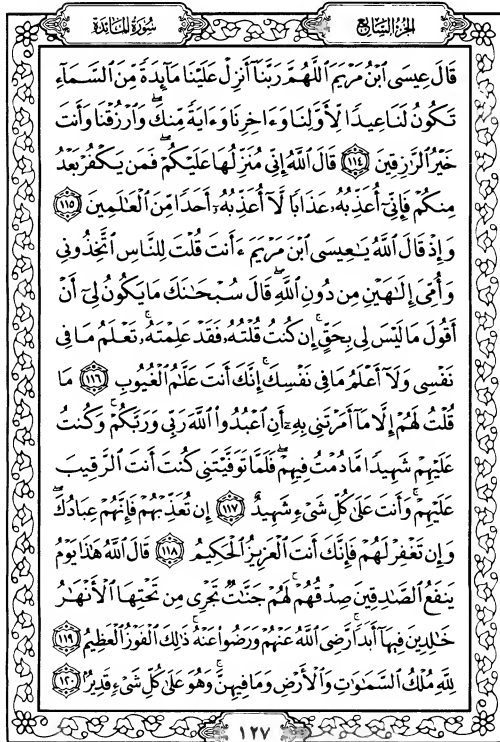 سُورَةُ المَائدَة
الجُزءُ السَّابِع
قَالَ عِيسَى ٱبۡنُ مَرۡيَمَ ٱللَّهُمَّ رَبَّنَآ أَنزِلۡ عَلَيۡنَا مَآئِدَةٗ مِّنَ ٱلسَّمَآءِ
تَكُونُ لَنَا عِيدٗا لِّأَوَّلِنَا وَءَاخِرِنَا وَءَايَةٗ مِّنكَۖ وَٱرۡزُقۡنَا وَأَنتَ
خَيۡرُ ٱلرَّٰزِقِينَ ١١٤ قَالَ ٱللَّهُ إِنِّي مُنَزِّلُهَا عَلَيۡكُمۡۖ فَمَن يَكۡفُرۡ بَعۡدُ
مِنكُمۡ فَإِنِّيٓ أُعَذِّبُهُۥ عَذَابٗا لَّآ أُعَذِّبُهُۥٓ أَحَدٗا مِّنَ ٱلۡعَٰلَمِينَ ١١٥
وَإِذۡ قَالَ ٱللَّهُ يَٰعِيسَى ٱبۡنَ مَرۡيَمَ ءَأَنتَ قُلۡتَ لِلنَّاسِ ٱتَّخِذُونِي
وَأُمِّيَ إِلَٰهَيۡنِ مِن دُونِ ٱللَّهِۖ قَالَ سُبۡحَٰنَكَ مَا يَكُونُ لِيٓ أَنۡ
أَقُولَ مَا لَيۡسَ لِي بِحَقٍّۚ إِن كُنتُ قُلۡتُهُۥ فَقَدۡ عَلِمۡتَهُۥۚ تَعۡلَمُ مَا فِي
نَفۡسِي وَلَآ أَعۡلَمُ مَا فِي نَفۡسِكَۚ إِنَّكَ أَنتَ عَلَّٰمُ ٱلۡغُيُوبِ ١١٦ مَا
قُلۡتُ لَهُمۡ إِلَّا مَآ أَمَرۡتَنِي بِهِۦٓ أَنِ ٱعۡبُدُواْ ٱللَّهَ رَبِّي وَرَبَّكُمۡۚ وَكُنتُ
عَلَيۡهِمۡ شَهِيدٗا مَّا دُمۡتُ فِيهِمۡۖ فَلَمَّا تَوَفَّيۡتَنِي كُنتَ أَنتَ ٱلرَّقِيبَ
عَلَيۡهِمۡۚ وَأَنتَ عَلَىٰ كُلِّ شَيۡءٖ شَهِيدٌ ١١٧ إِن تُعَذِّبۡهُمۡ فَإِنَّهُمۡ عِبَادُكَۖ
وَإِن تَغۡفِرۡ لَهُمۡ فَإِنَّكَ أَنتَ ٱلۡعَزِيزُ ٱلۡحَكِيمُ ١١٨ قَالَ ٱللَّهُ هَٰذَا يَوۡمُ
يَنفَعُ ٱلصَّٰدِقِينَ صِدۡقُهُمۡۚ لَهُمۡ جَنَّٰتٞ تَجۡرِي مِن تَحۡتِهَا ٱلۡأَنۡهَٰرُ
خَٰلِدِينَ فِيهَآ أَبَدٗاۚ رَّضِيَ ٱللَّهُ عَنۡهُمۡ وَرَضُواْ عَنۡهُۚ ذَٰلِكَ ٱلۡفَوۡزُ ٱلۡعَظِيمُ ١١٩
لِلَّهِ مُلۡكُ ٱلسَّمَٰوَٰتِ وَٱلۡأَرۡضِ وَمَا فِيهِنَّۚ وَهُوَ عَلَىٰ كُلِّ شَيۡءٖ قَدِيرُۢ ١٢٠
١٢٧